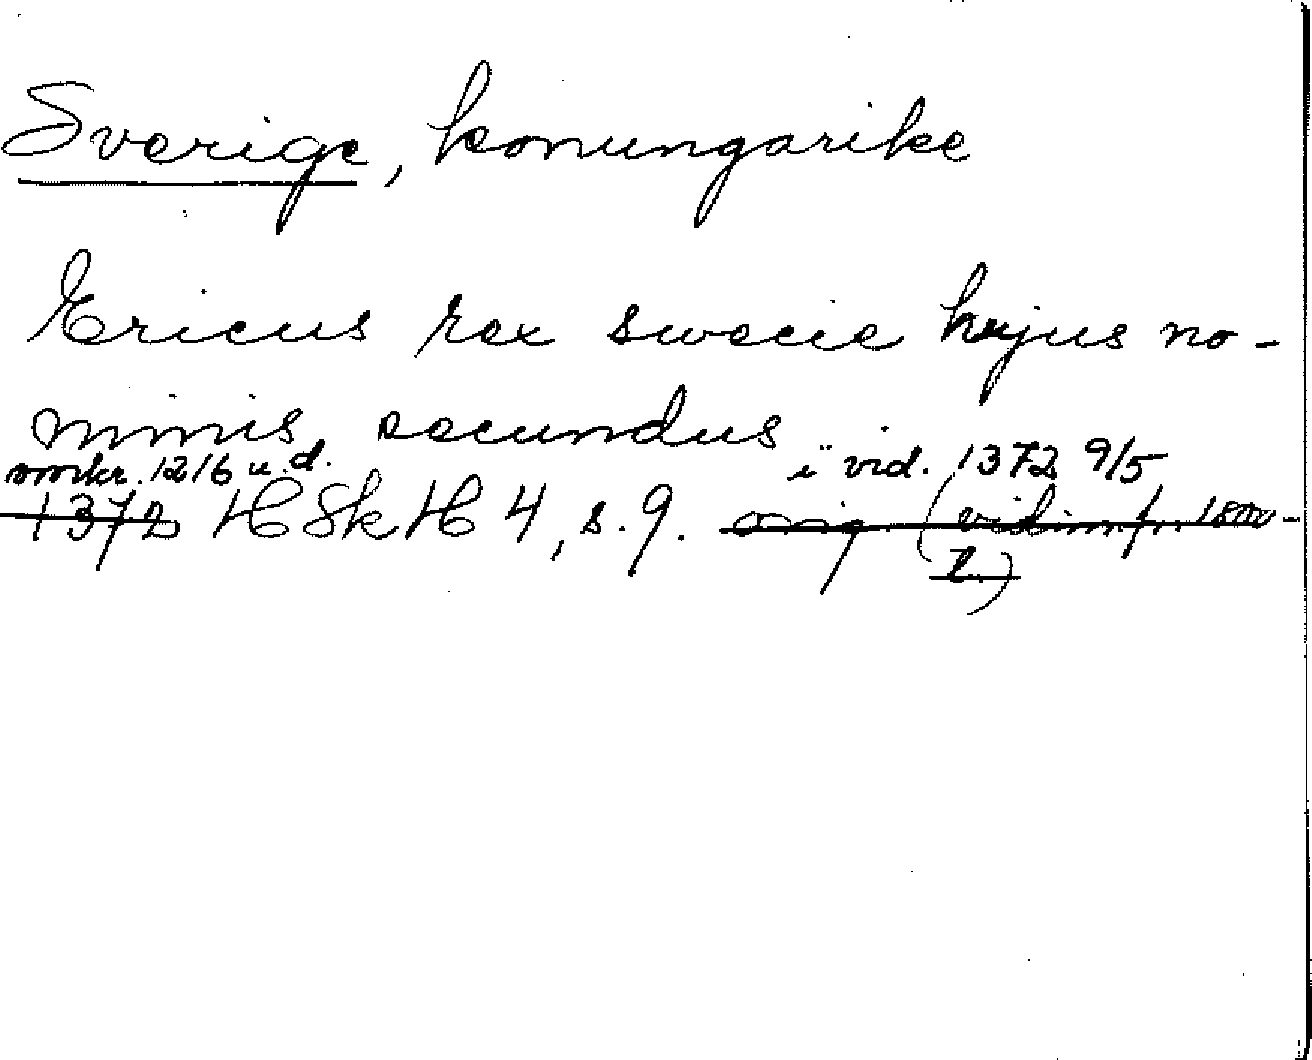 Sverige, konungarike
Ericus rex swecie hujus no-
minis secundus
omkr. 1216 u.d. i vid. 1372 9/5
1372 HSkH 4, s. 9. orig. (vidim fr.